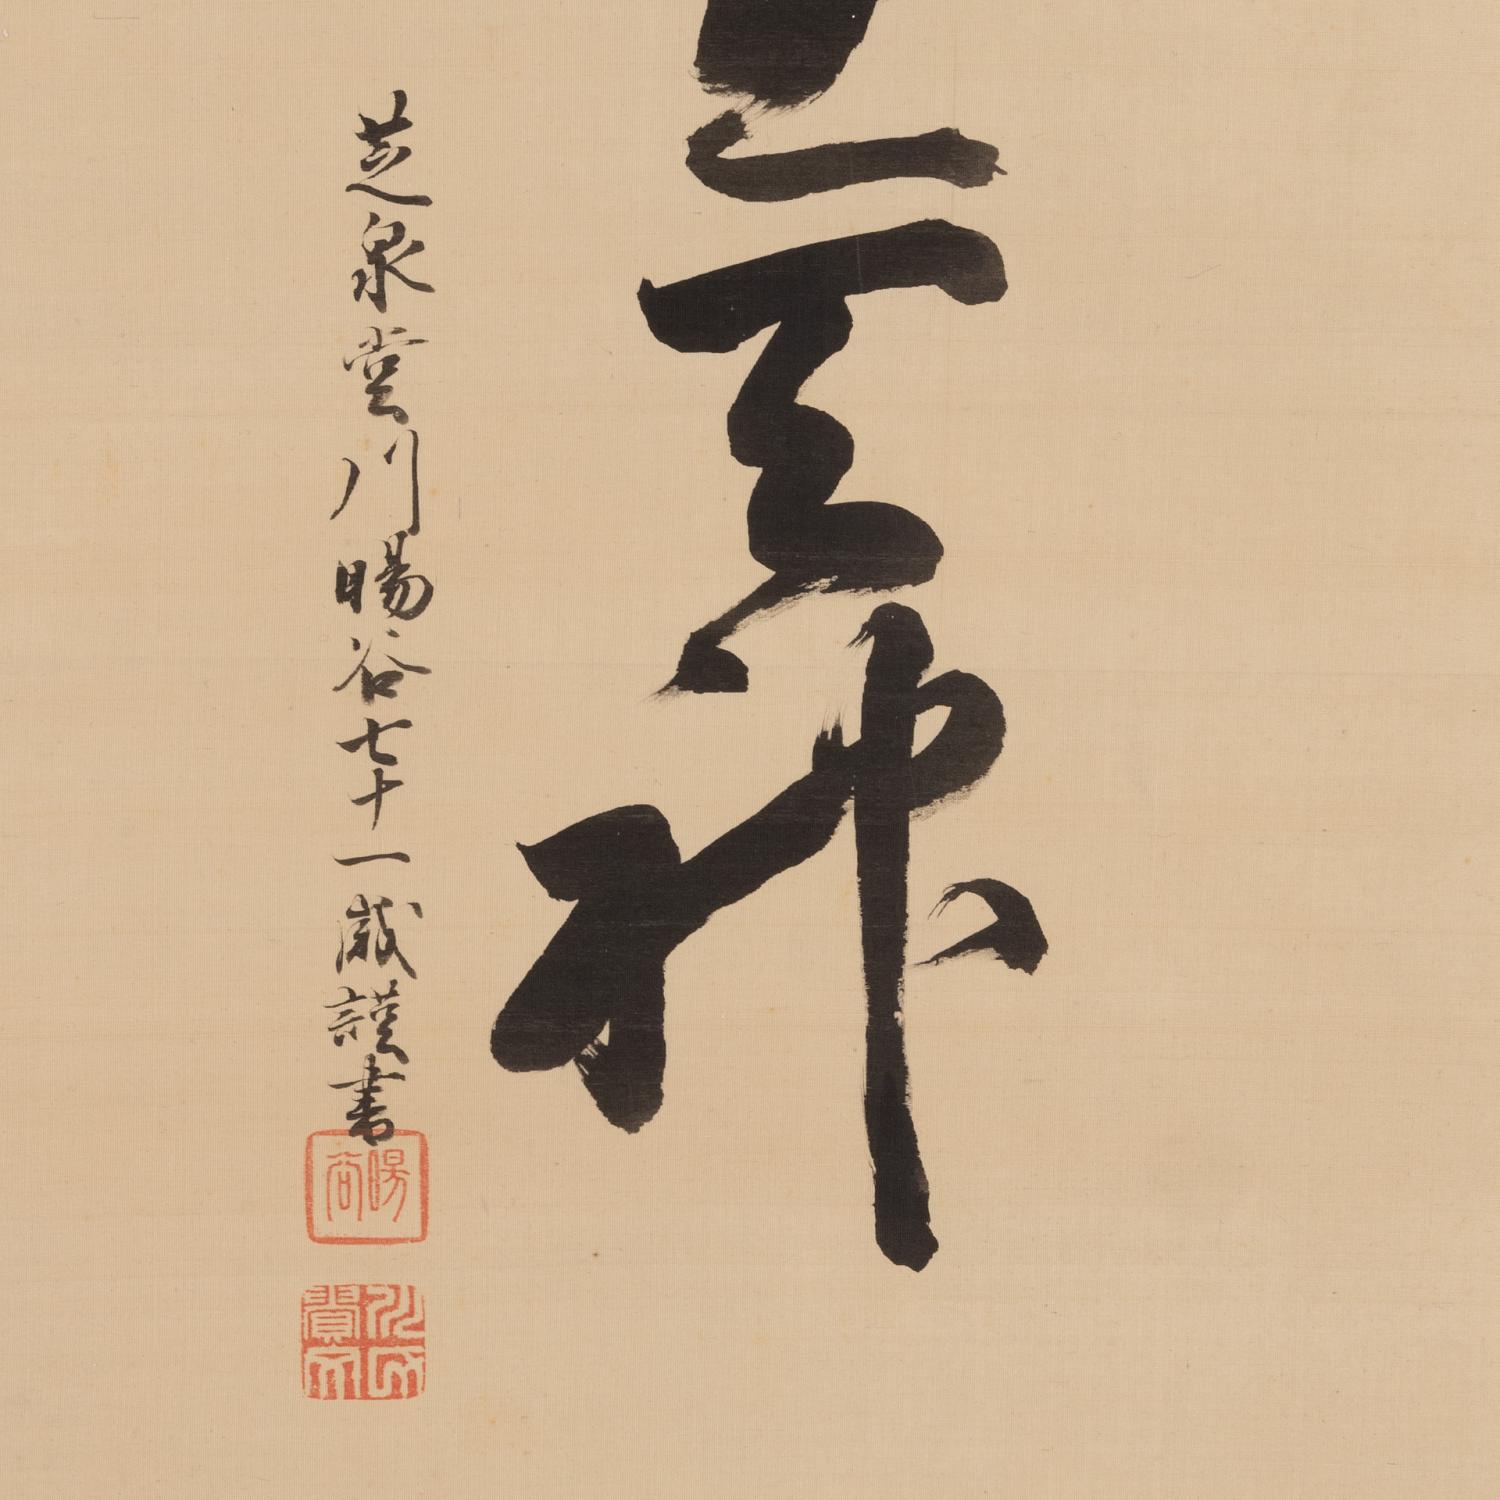 天神
芝泉堂川暘谷七十一歳謹書
暘谷